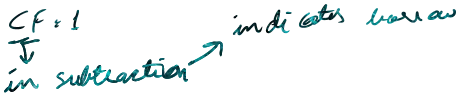 CF = 1
in subtraction
indicates borrow